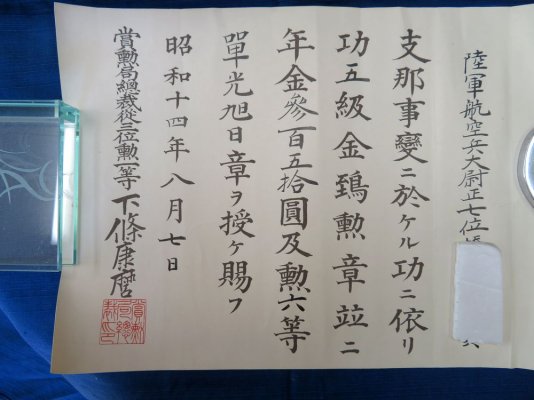 陸軍航空兵大尉正七位
支那事變ニ於ケル功ニ依リ
功五級金鵄勲章竝ニ
年金參百五拾圓及勲六等
單光旭日章ヲ授ケ賜フ
昭和十四年八月七日
賞勲局總裁從三位勲一等下條康麿
賞勲局總裁之印